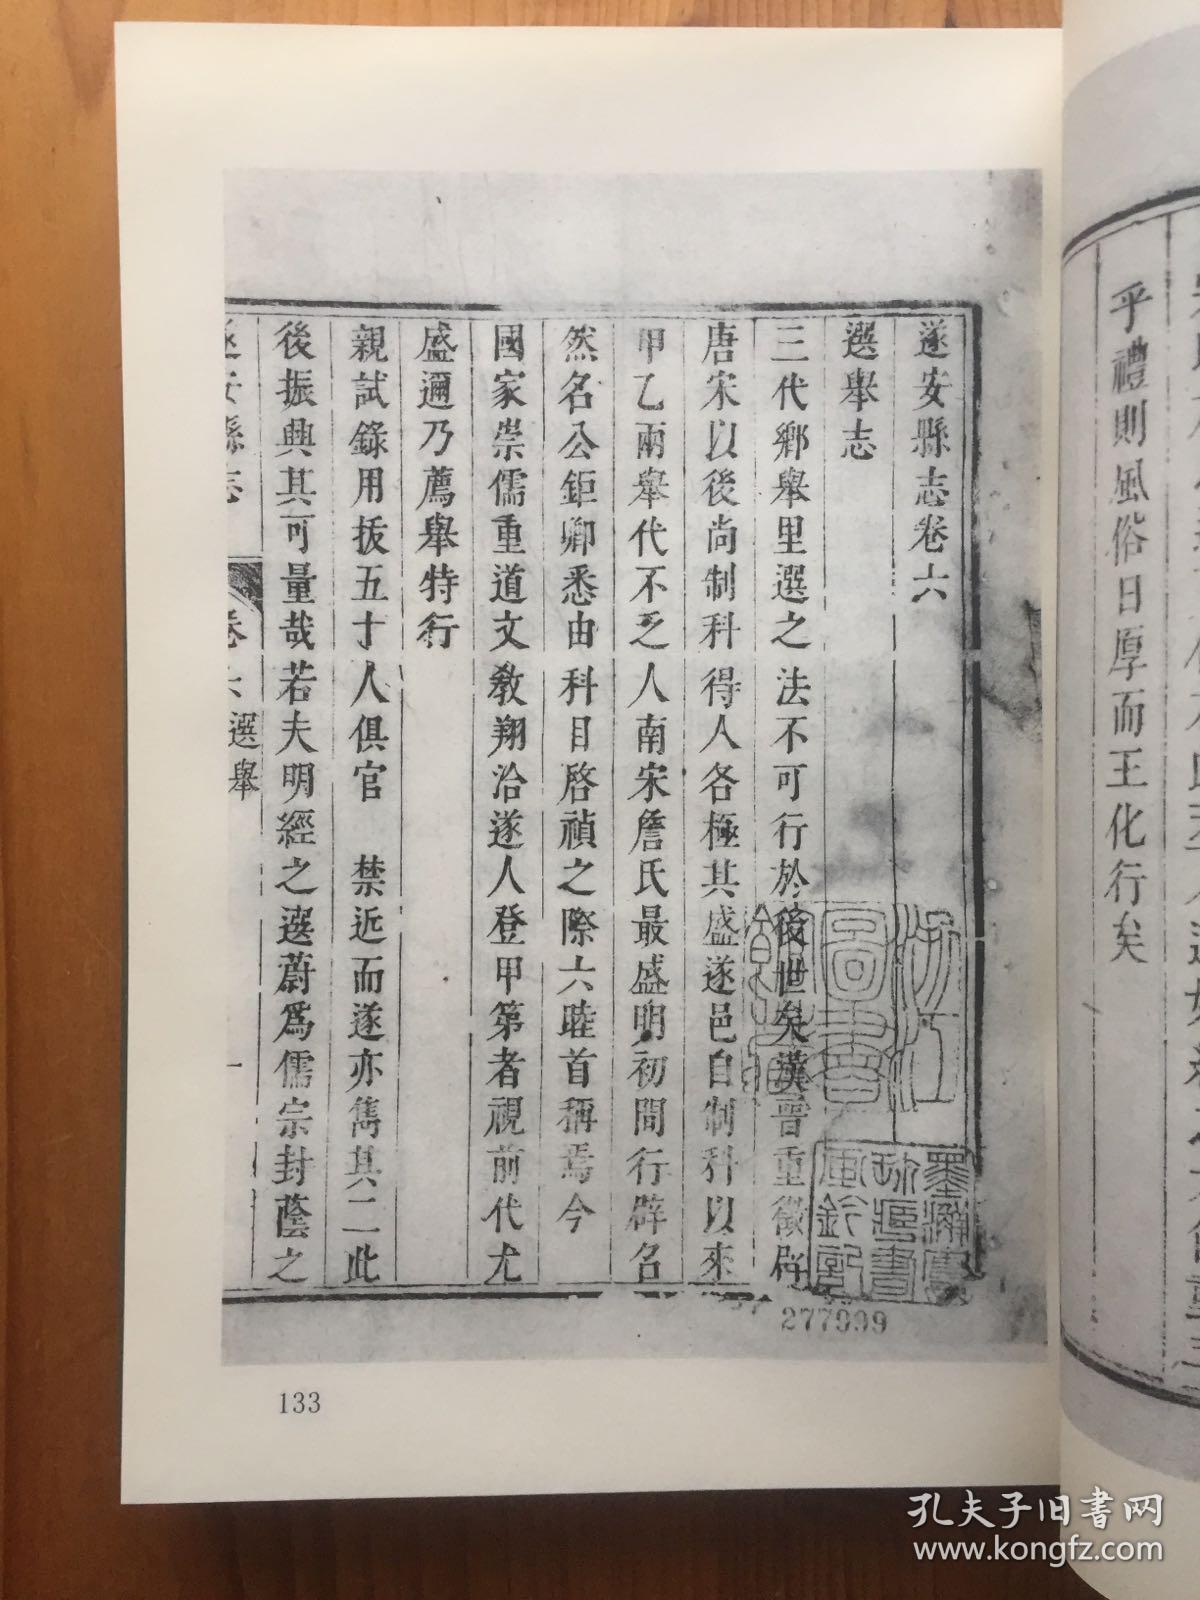 遂安縣志卷六
選舉志
三代鄉舉里選之法不可行於後世矣漢晉重徵辟
唐宋以後尚制科得人各極其盛遂邑自制科以來
甲乙兩舉代不乏人南宋詹氏最盛明初間行辟名
然名公鉅卿悉由科目啓禎之際六睦首稱焉今
國家崇儒重道文敎翔洽遂人登甲第者視前代尤
盛邇乃薦舉特行
親試錄用拔五十人俱官 禁近而遂亦雋其二此
後振興其可量哉若夫明經之選蔚爲儒宗封蔭之
遂安縣志 卷六 選舉 一
浙江
圖書
館藏
277999
133
乎禮則風俗日厚而王化行矣
孔夫子旧书网
www.kongfz.com